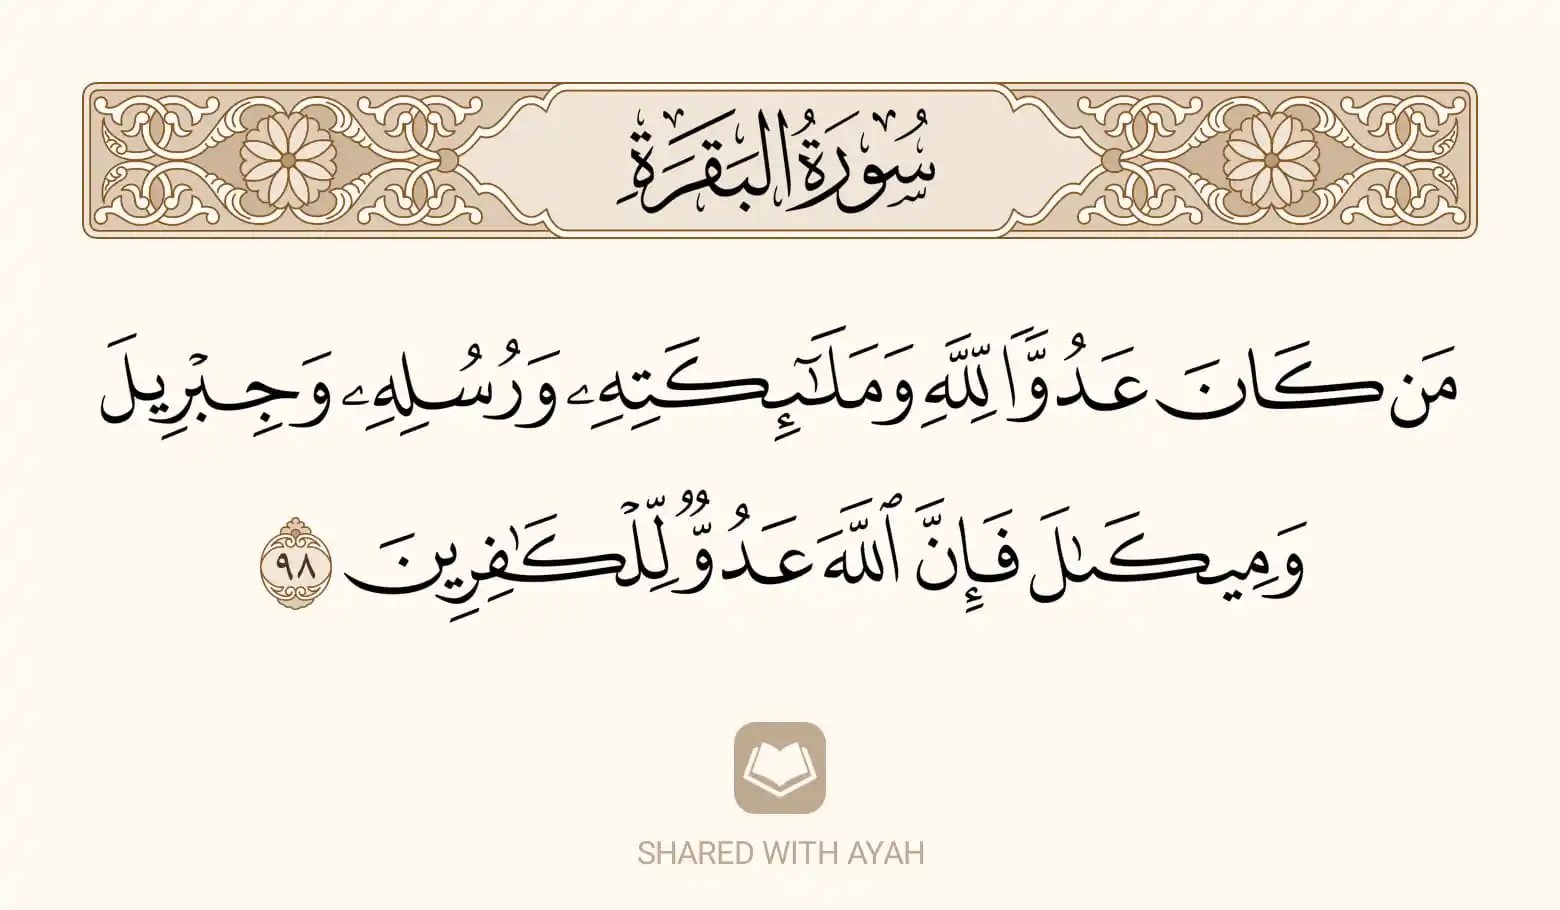 سُورَةُ البَقَرَةِ
مَن كَانَ عَدُوّٗا لِّلَّهِ وَمَلَٰٓئِكَتِهِۦ وَرُسُلِهِۦ وَجِبۡرِيلَ
وَمِيكَىٰلَ فَإِنَّ ٱللَّهَ عَدُوّٞ لِّلۡكَٰفِرِينَ ٩٨
SHARED WITH AYAH